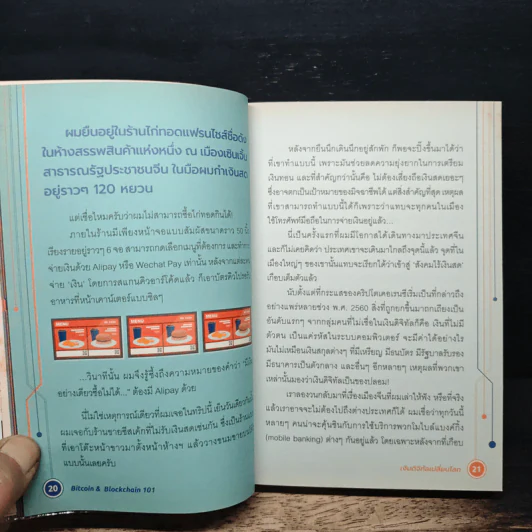 ผมยืนอยู่ในร้านไก่ทอดแฟรนไชส์ชื่อดัง
ในห้างสรรพสินค้าแห่งหนึ่ง ณ เมืองเซินเจิ้น
สาธารณรัฐประชาชนจีน ในมือผมกำเงินสด
อยู่ราวๆ 120 หยวน
แต่เชื่อไหมครับว่าผมไม่สามารถซื้อไก่ทอดกินได้!
ภายในร้านมีเพียงหน้าจอแบบสัมผัสขนาดราว 50 นิ้ว
เรียงรายอยู่ราวๆ 6 จอ สามารถกดเลือกเมนูที่ต้องการ และทำการ
จ่ายเงินด้วย Alipay หรือ Wechat Pay เท่านั้น หลังจากแตะ
จ่าย 'เงิน' โดยการสแกนคิวอาร์โค้ดแล้ว ก็เอาบัตรคิวไปรอรับ
อาหารที่หน้าเคาน์เตอร์แบบชิลๆ
MENU
MENU
MENU
MENU
...วินาทีนั้น ผมจึงรู้ซึ้งถึงความหมายของคำว่า "มีเงิน
อย่างเดียวซื้อไม่ได้..." ต้องมี Alipay ด้วย
นี่ไม่ใช่เหตุการณ์เดียวที่ผมเจอในทริปนี้ เย็นวันเดียวกัน
ผมเจอกับร้านขายชีสเค้กที่ไม่รับเงินสดเช่นกัน ซึ่งเป็นร้าน
ที่เอาโต๊ะหน้าขาวมาตั้งหน้าห้างฯ แล้ววางขนมขาย
แบบนั้นเลยครับ
20 Bitcoin & Blockchain 101
หลังจากยืนนึกเดินนึกอยู่สักพัก ก็พอจะปิ๊งขึ้นมาได้ว่า
ที่เขาทำแบบนี้ เพราะมันช่วยลดความยุ่งยากในการเตรียม
เงินทอน และที่สำคัญกว่านั้นคือ ไม่ต้องเสี่ยงถือเงินสดเยอะๆ
ซึ่งอาจตกเป็นเป้าหมายของมิจฉาชีพได้ แต่สิ่งสำคัญที่สุด เหตุผล
ที่เขาสามารถทำแบบนี้ได้ก็เพราะว่าแทบจะทุกคนในเมือง
ใช้โทรศัพท์มือถือในการจ่ายเงินอยู่แล้ว...
นี่เป็นครั้งแรกที่ผมมีโอกาสได้เดินทางมาประเทศจีน
และก็ไม่เคยคิดว่า ประเทศเขาจะเดินมาไกลถึงจุดนี้แล้ว จุดที่ใน
เมืองใหญ่ๆ ของเขานั้นแทบจะเรียกได้ว่าเข้าสู่ 'สังคมไร้เงินสด'
เกือบเต็มตัวแล้ว
นับตั้งแต่ที่กระแสของคริปโตเคอเรนซีเริ่มเป็นที่กล่าวถึง
อย่างแพร่หลายช่วง พ.ศ. 2560 สิ่งที่ถูกยกขึ้นมาถกเถียงเป็น
อันดับแรกๆ จากกลุ่มคนที่ไม่เชื่อในเงินดิจิทัลก็คือ เงินที่ไม่มี
ตัวตน เป็นแค่รหัสในระบบคอมพิวเตอร์ จะมีค่าได้อย่างไร
มันไม่เหมือนเงินสกุลต่างๆ ที่มีเหรียญ มีธนบัตร มีรัฐบาลรับรอง
มีธนาคารเป็นตัวกลาง และอื่นๆ อีกหลายๆ เหตุผลที่พวกเขา
เหล่านั้นมองว่าเงินดิจิทัลเป็นของปลอม!
เราลองวนกลับมาที่เรื่องเมืองจีนที่ผมเล่าให้ฟัง หรือที่จริง
แล้วเราอาจจะไม่ต้องไปถึงต่างประเทศก็ได้ ผมเชื่อว่าทุกวันนี้
หลายๆ คนน่าจะคุ้นชินกับการใช้บริการพวกโมไบล์แบงค์กิ้ง
(mobile banking) ต่างๆ กันอยู่แล้ว โดยเฉพาะหลังจากที่เกือบ
เงินดิจิทัลเปลี่ยนโลก 21